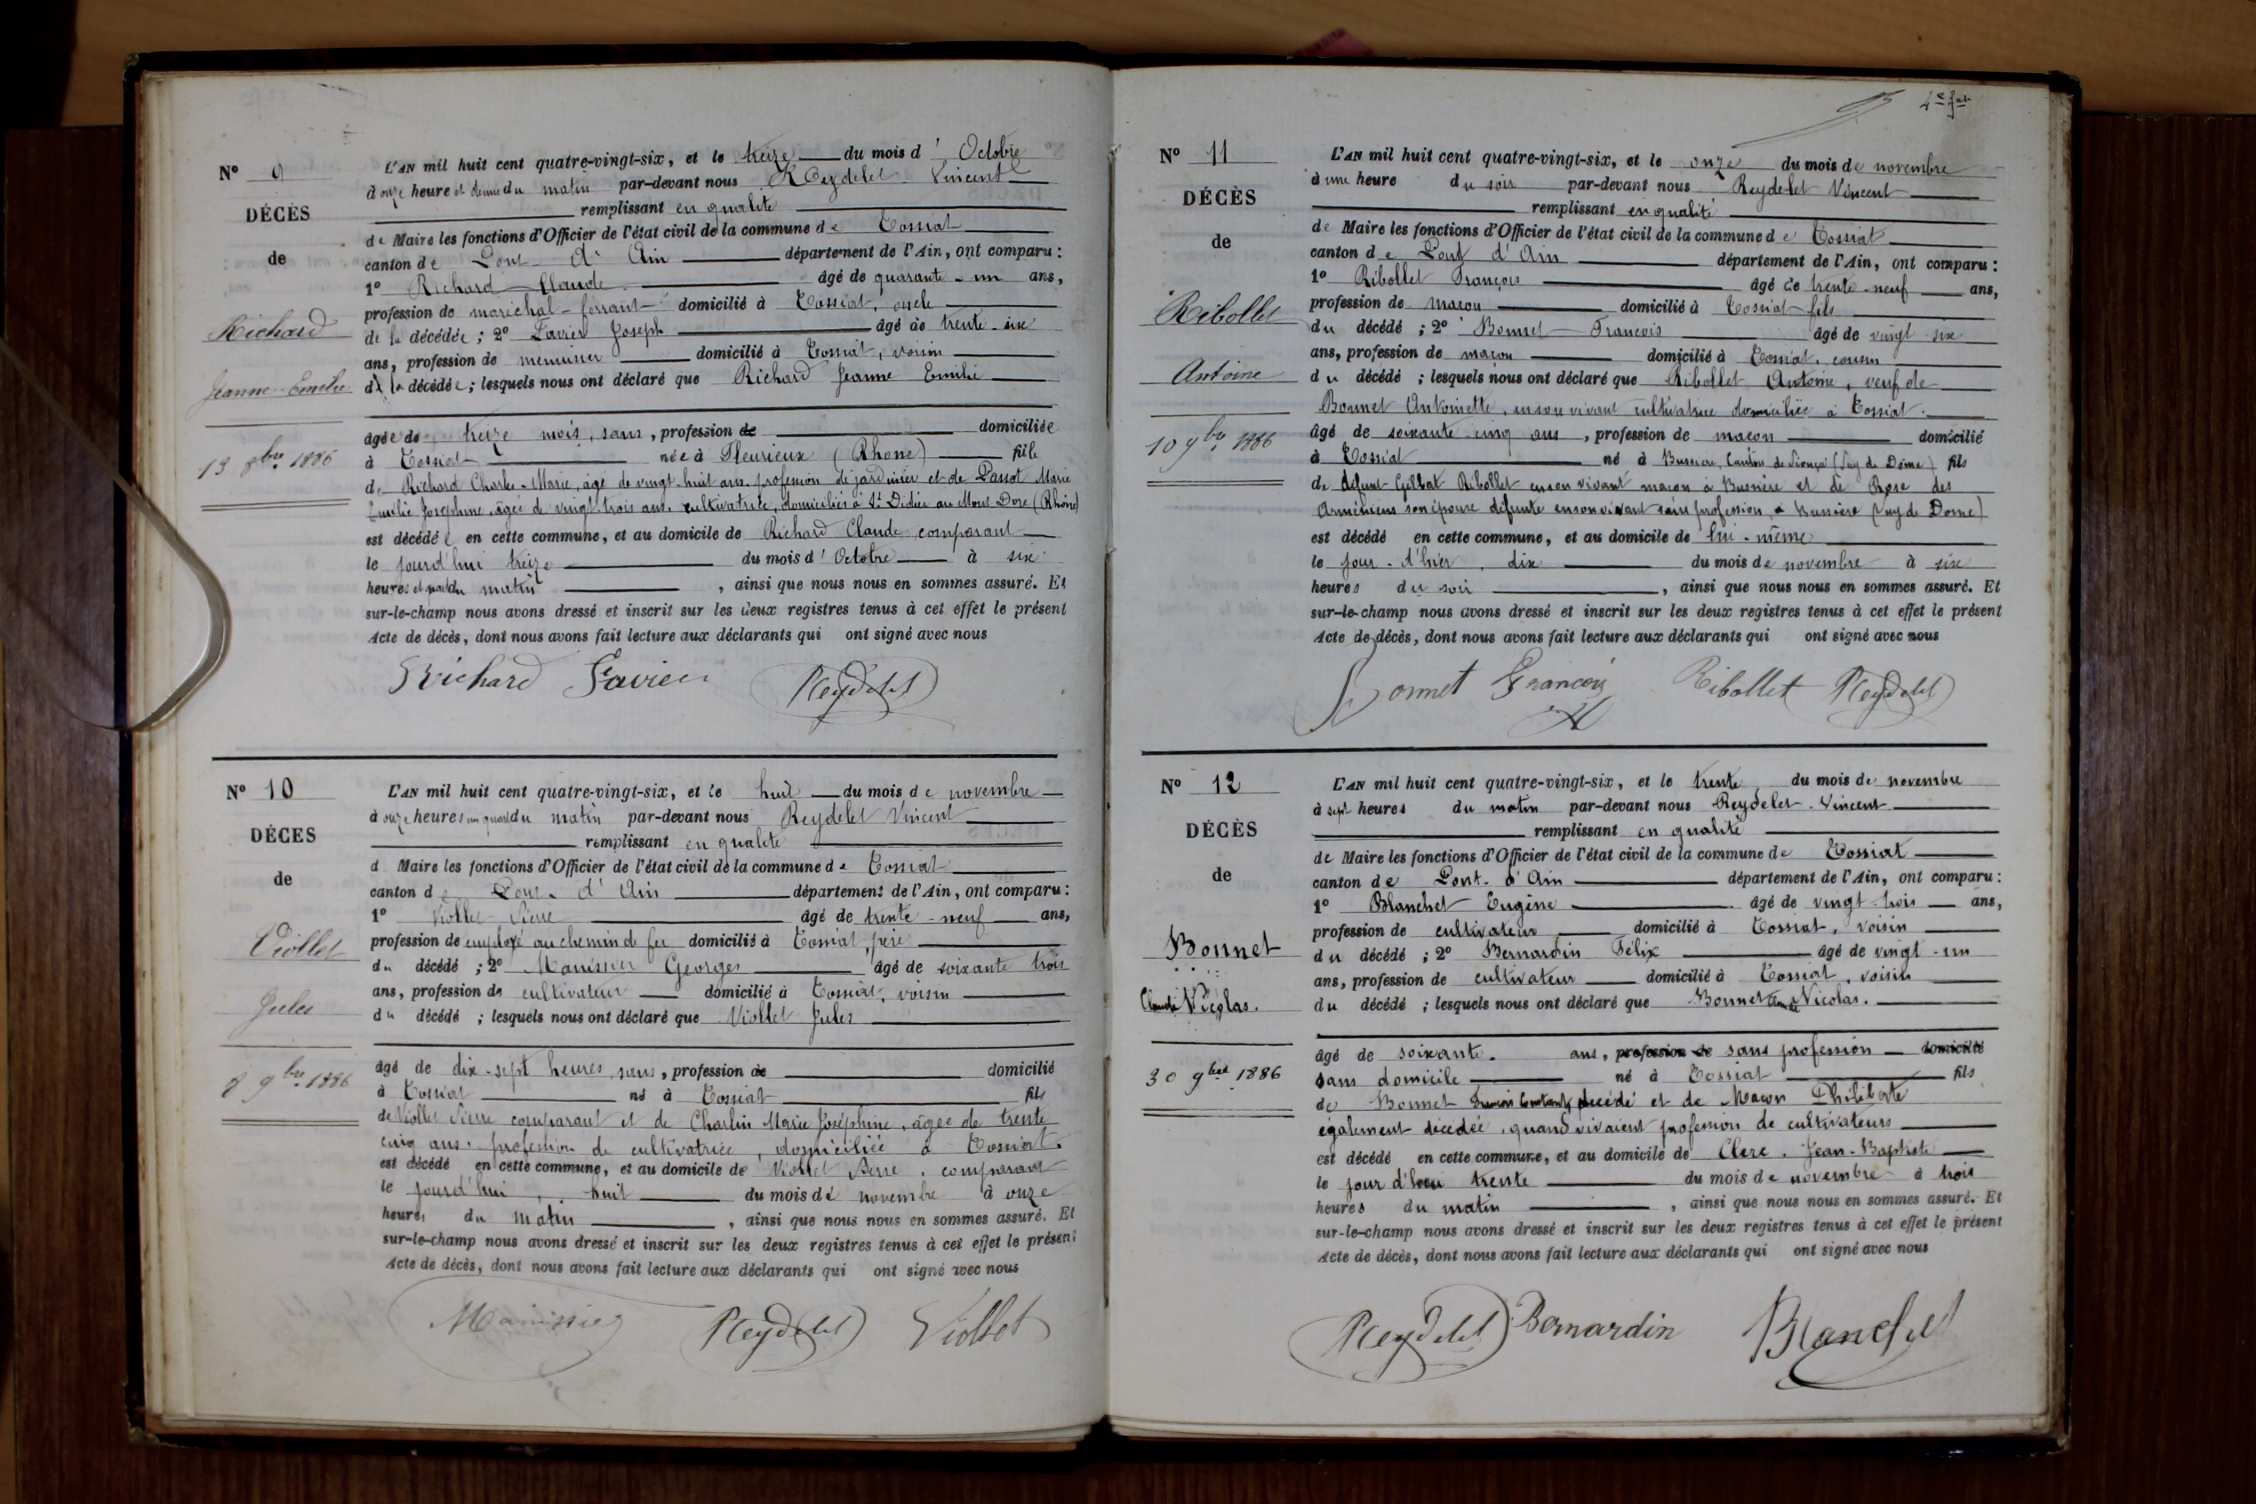 Nº 9
DÉCÈS
de
Richard
Jeanne-Emilie
13 8bre 1886
L'AN mil huit cent quatre-vingt-six, et le treize du mois d' Octobre
à onze heure et demie du matin par-devant nous Reydelet Vincent
remplissant en qualité
de Maire les fonctions d'Officier de l'état civil de la commune de Tossiat
canton de Pont d'Ain département de l'Ain, ont comparu :
1º Richard Claude âgé de quarante-un ans,
profession de maréchal-ferrant domicilié à Tossiat, oncle
de la décédée ; 2º Favier Joseph âgé de trente-six
ans, profession de menuisier domicilié à Tossiat, voisin
de la décédée ; lesquels nous ont déclaré que Richard Jeanne Emilie
âgée de treize mois, sans, profession de domiciliée
à Tossiat née à Fleurieux (Rhone) fille
de Richard Charles-Marie, âgé de vingt-huit ans profession de jardinier et de Passot Marie
Emilie Joséphine âgée de vingt-trois ans, cultivatrice, domiciliés à St Didier au Mont Dore (Rhône)
est décédée en cette commune, et au domicile de Richard Claude comparant
le jourd'hui treize du mois d'Octobre à six
heures et demi du matin, ainsi que nous nous en sommes assuré. Et
sur-le-champ nous avons dressé et inscrit sur les deux registres tenus à cet effet le présent
Acte de décès, dont nous avons fait lecture aux déclarants qui ont signé avec nous
Richard Favier Reydelet
Nº 10
DÉCES
de
Viollet
Jules
8 9bre 1886
L'AN mil huit cent quatre-vingt-six, et le huit du mois de novembre
à onze heures un quart du matin par-devant nous Reydelet Vincent
remplissant en qualité
d Maire les fonctions d'Officier de l'état civil de la commune de Tossiat
canton de Pont d'Ain département de l'Ain, ont comparu :
1º Viollet Pierre âgé de trente-neuf ans,
profession de employé au chemin de fer domicilié à Tossiat, père
du décédé ; 2º Manissier Georges âgé de soixante trois
ans, profession de cultivateur domicilié à Tossiat, voisin
du décédé ; lesquels nous ont déclaré que Viollet Jules
âgé de dix-sept heures, sans, profession de domicilié
à Tossiat né à Tossiat fils
de Viollet Pierre comparant et de Charlin Marie Joséphine, âgée de trente
cinq ans, profession de cultivatrice, domiciliée à Tossiat.
est décédé en cette commune, et au domicile de Viollet Pierre, comparant
le jourd'hui, huit du mois de novembre à onze
heures du matin, ainsi que nous nous en sommes assuré. Et
sur-le-champ nous avons dressé et inscrit sur les deux registres tenus à cet effet le présent
Acte de décès, dont nous avons fait lecture aux déclarants qui ont signé avec nous
Manissier Reydelet Viollet
Nº 11
DÉCÈS
de
Ribollet
Antoine
10 9bre 1886
L'AN mil huit cent quatre-vingt-six, et le onze du mois de novembre
à une heure du soir par-devant nous Reydelet Vincent
remplissant en qualité
de Maire les fonctions d'Officier de l'état civil de la commune de Tossiat
canton de Pont d'Ain département de l'Ain, ont comparu :
1º Ribollet François âgé de trente-neuf ans,
profession de maçon domicilié à Tossiat fils
du décédé ; 2º Bonnet François âgé de vingt-six
ans, profession de maçon domicilié à Tossiat, cousin
du décédé ; lesquels nous ont déclaré que Ribollet Antoine, veuf de
Bonnet Antoinette, en son vivant cultivatrice domiciliée à Tossiat.
âgé de soixante-cinq ans, profession de maçon domicilié
à Tossiat né à Bussière, Canton de (Puy de Dôme) fils
de défunt Gilbat Ribollet en son vivant maçon à Bussière et de Rose des
Arméniens son épouse défunte en son vivant sans profession, à Bussière (Puy de Dome)
est décédé en cette commune, et au domicile de lui-même
le jour d'hier, dix du mois de novembre à six
heures du soir, ainsi que nous nous en sommes assuré. Et
sur-le-champ nous avons dressé et inscrit sur les deux registres tenus à cet effet le présent
Acte de décès, dont nous avons fait lecture aux déclarants qui ont signé avec nous
Bonnet François Ribollet Reydelet
Nº 12
DÉCÈS
de
Bonnet
Claude Nicolas.
30 9bre 1886
L'AN mil huit cent quatre-vingt-six, et le trente du mois de novembre
à sept heures du matin par-devant nous Reydelet Vincent
remplissant en qualité
de Maire les fonctions d'Officier de l'état civil de la commune de Tossiat
canton de Pont d'Ain département de l'Ain, ont comparu :
1º Blanchet Eugène âgé de vingt-trois ans,
profession de cultivateur domicilié à Tossiat, voisin
du décédé ; 2º Bernardin Félix âgé de vingt-un
ans, profession de cultivateur domicilié à Tossiat, voisin
du décédé ; lesquels nous ont déclaré que Bonnet Claude Nicolas.
âgé de soixante. ans, profession de sans profession domicilié
sans domicile né à Tossiat fils
de Bonnet François Constant, décédé et de Maçon Philiberte
également décédée, quand vivaient profession de cultivateurs
est décédé en cette commune, et au domicile de Clerc, Jean-Baptiste
le jour d'hui trente du mois de novembre à trois
heures du matin, ainsi que nous nous en sommes assuré. Et
sur-le-champ nous avons dressé et inscrit sur les deux registres tenus à cet effet le présent
Acte de décès, dont nous avons fait lecture aux déclarants qui ont signé avec nous
Reydelet Bernardin Blanchet